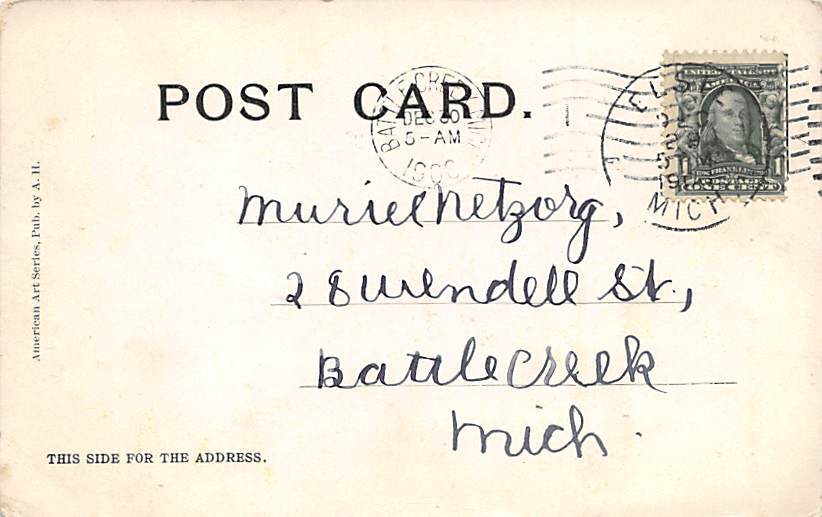 POST CARD.
BATTLE CREEK MICH
DEC 30
5-AM
UNITED STATES OF AMERICA
1 1
POSTAGE
ONE CENT
MICH
Muriel Netzorg,
28 Wendell St.,
Battle Creek
Mich.
American Art Series, Pub. by A. H.
THIS SIDE FOR THE ADDRESS.